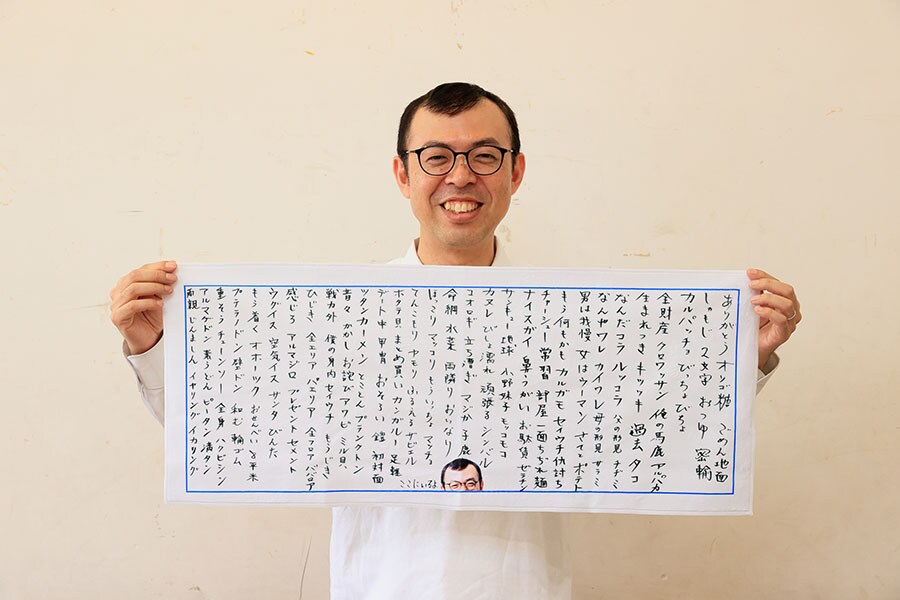 ありがとう オリゴ糖 ごめん 地面
しゃもじ 2文字 おつゆ 密輸
カルパッチョ びちょびちょ
全財産 クロワッサン 俺の馬鹿 アルパカ
生まれつき キツツキ 過去 タコ
なんだコラ ルッコラ 父の形見 チヂミ
なんやワレ カイワレ 母の形見 サラミ
男は我慢 女はウーマン ささみ ポテト
もう何もかも カルガモ セイウチ 仇討ち
チャーシュー 常習 部屋一面ちぢれ麺
ナイスガイ 鼻うがい お駄賃 ゼラチン
カンガルー 地球 小野妹子 モッコモコ
カヌレ びしょ濡れ 頑張る シンバル
コオロギ 立ち漕ぎ マジか 子鹿
命綱 水菜 両隣り おいなり
ほっこり マッコリ もういいよ マッチョ
てんこもり ヤモリ ふるえるザビエル
ホタテ貝 まとめ買い カンガルー 足軽
デート中 甲冑 おそろい 鎧 初対面
ツタンカーメン とことん プランクトン
昔々 かかし お詫び アワビ ミル貝
戦力外 僕の身内 セイウチ もうじき
ひじき 全エリア パエリア 金フロア ババロア
感じろ アルマジロ プレゼント セメント
ウグイス 空気イス サンタ びんた
もう着く オホーツク おせんべい 8平米
プテラノドン 壁ドン 和む 輪ゴム
重そう チェーンソー 全身 ハクビシン
アルマゲドン 素うどん ピータン 満タン
両親 じんましん イヤリング イカリング
ここにいるよ